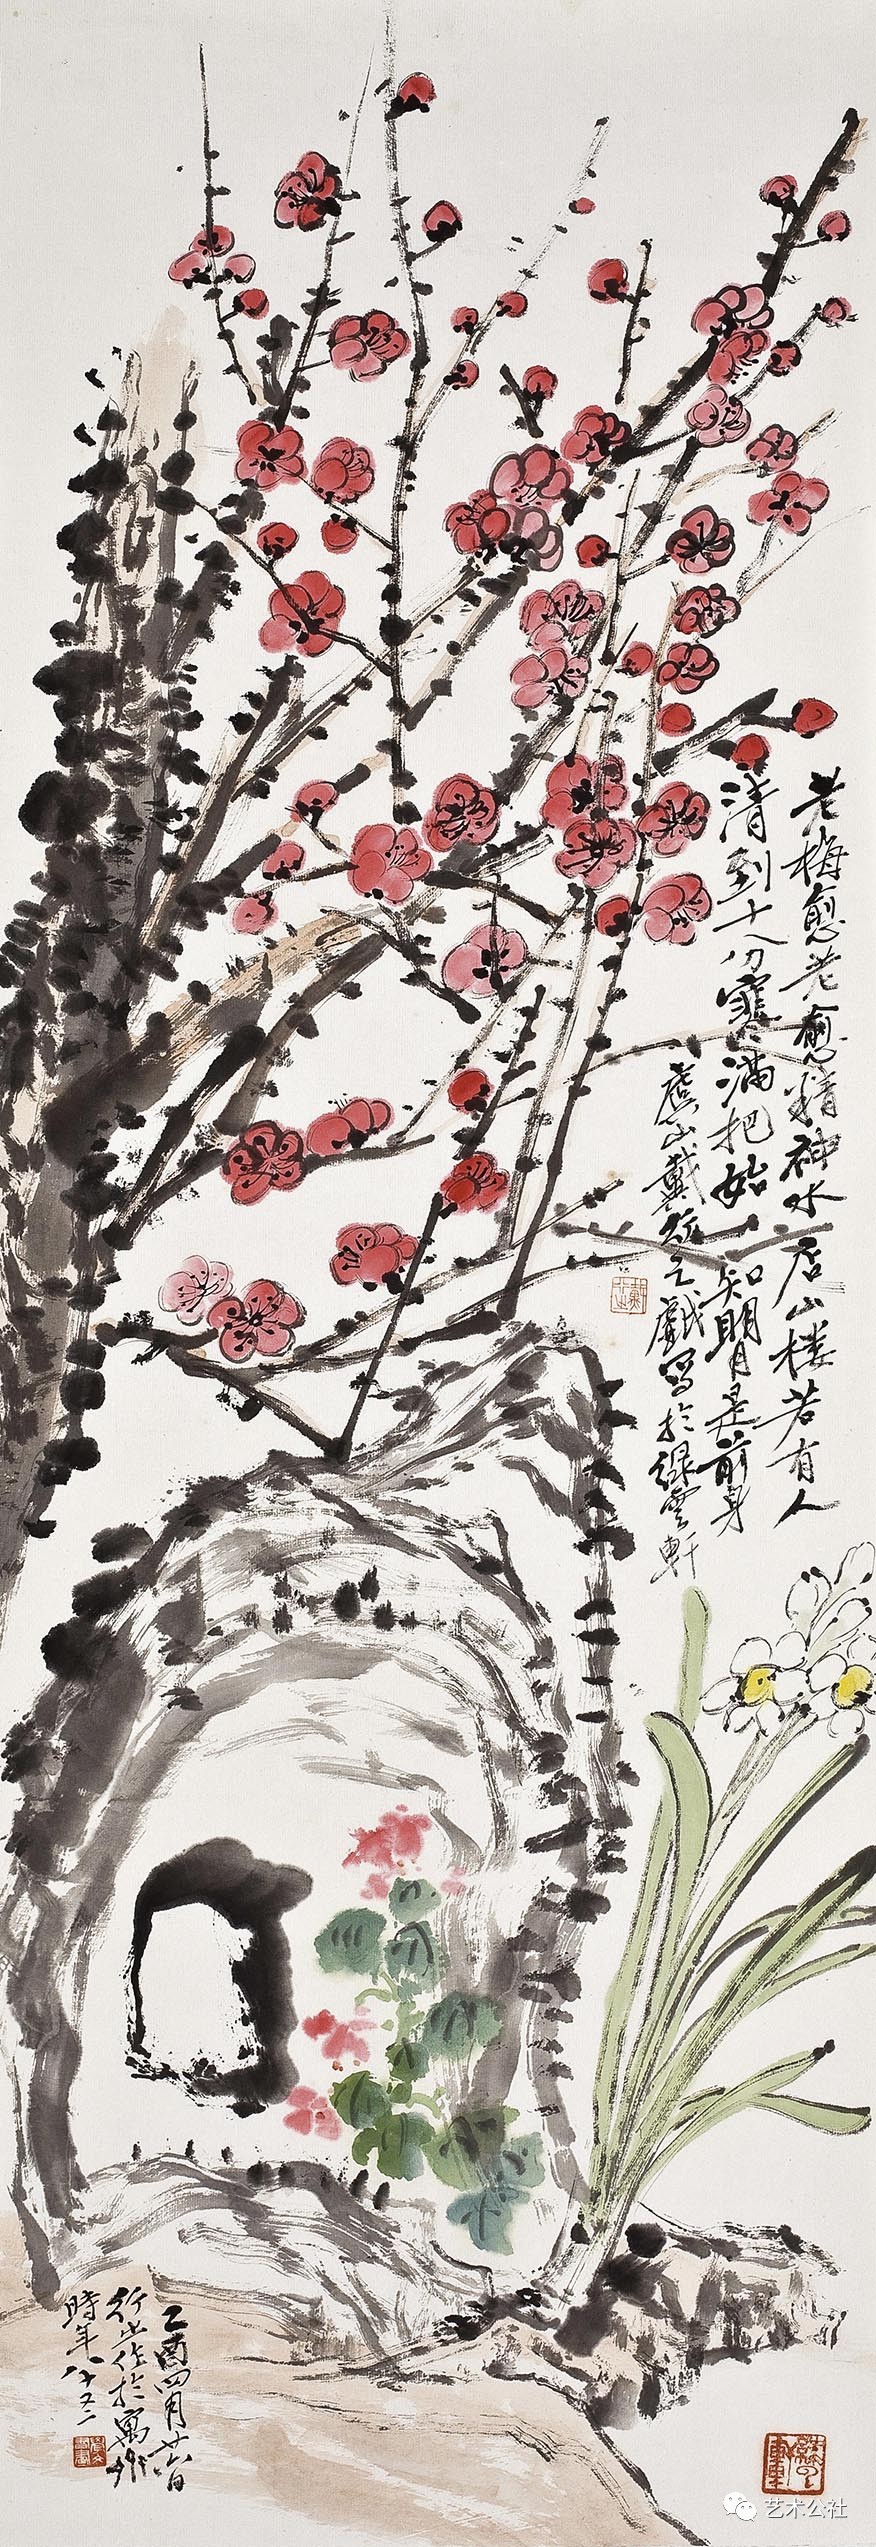 老梅愈老愈精神水店山楼若有人
清到十分寒满把始知明月是前身
虞山戴行之戲写於绿雲軒
乙酉四月廿六日
行之作於寓所
時年八十又二
艺术公社